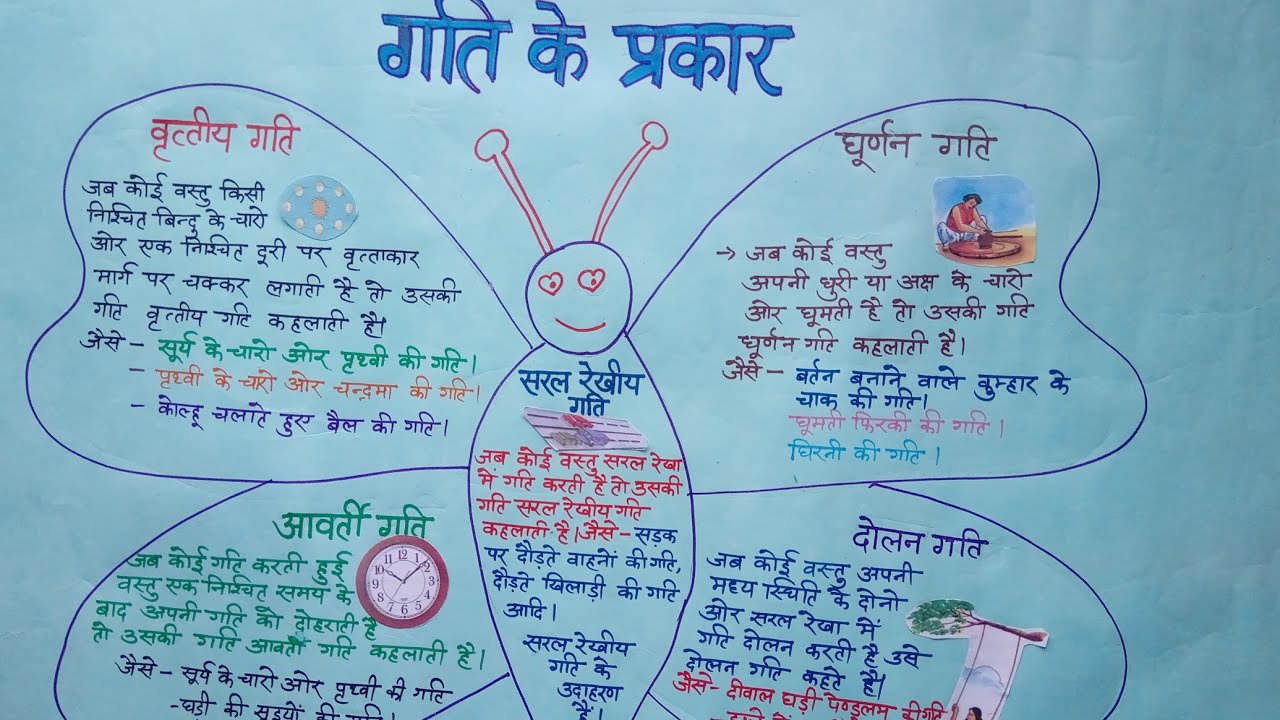 गति के प्रकार
वृत्तीय गति
जब कोई वस्तु किसी
निश्चित बिन्दु के चारो
ओर एक निश्चित दूरी पर वृत्ताकार
मार्ग पर चक्कर लगाती है तो उसकी
गति वृत्तीय गति कहलाती है।
जैसे - सूर्य के चारो ओर पृथ्वी की गति।
- पृथ्वी के चारो ओर चन्द्रमा की गति।
- कोल्हू चलाते हुए बैल की गति।
घूर्णन गति
→ जब कोई वस्तु
अपनी धुरी या अक्ष के चारो
ओर घूमती है तो उसकी गति
घूर्णन गति कहलाती है।
जैसे - बर्तन बनाने वाले कुम्हार के
चाक की गति।
घूमती फिरकी की गति।
घिरनी की गति।
सरल रेखीय
गति
जब कोई वस्तु सरल रेखा
में गति करती है तो उसकी
गति सरल रेखीय गति
कहलाती है। जैसे - सड़क
पर दौड़ते वाहनों की गति,
दौड़ते खिलाड़ी की गति
आदि।
सरल रेखीय
गति के
उदाहरण
हैं।
आवर्ती गति
जब कोई गति करती हुई
वस्तु एक निश्चित समय के
बाद अपनी गति को दोहराती है
तो उसकी गति आवर्ती गति कहलाती है।
जैसे - सूर्य के चारो ओर पृथ्वी की गति
- घड़ी की सुइयों की गति।
12 1 2 3 4 5 6 7 8 9 10 11
दोलन गति
जब कोई वस्तु अपनी
मध्य स्थिति के दोनो
ओर सरल रेखा में
गति दोलन करती है उसे
दोलन गति कहते है।
जैसे - दीवाल घड़ी पेण्डुलम की गति